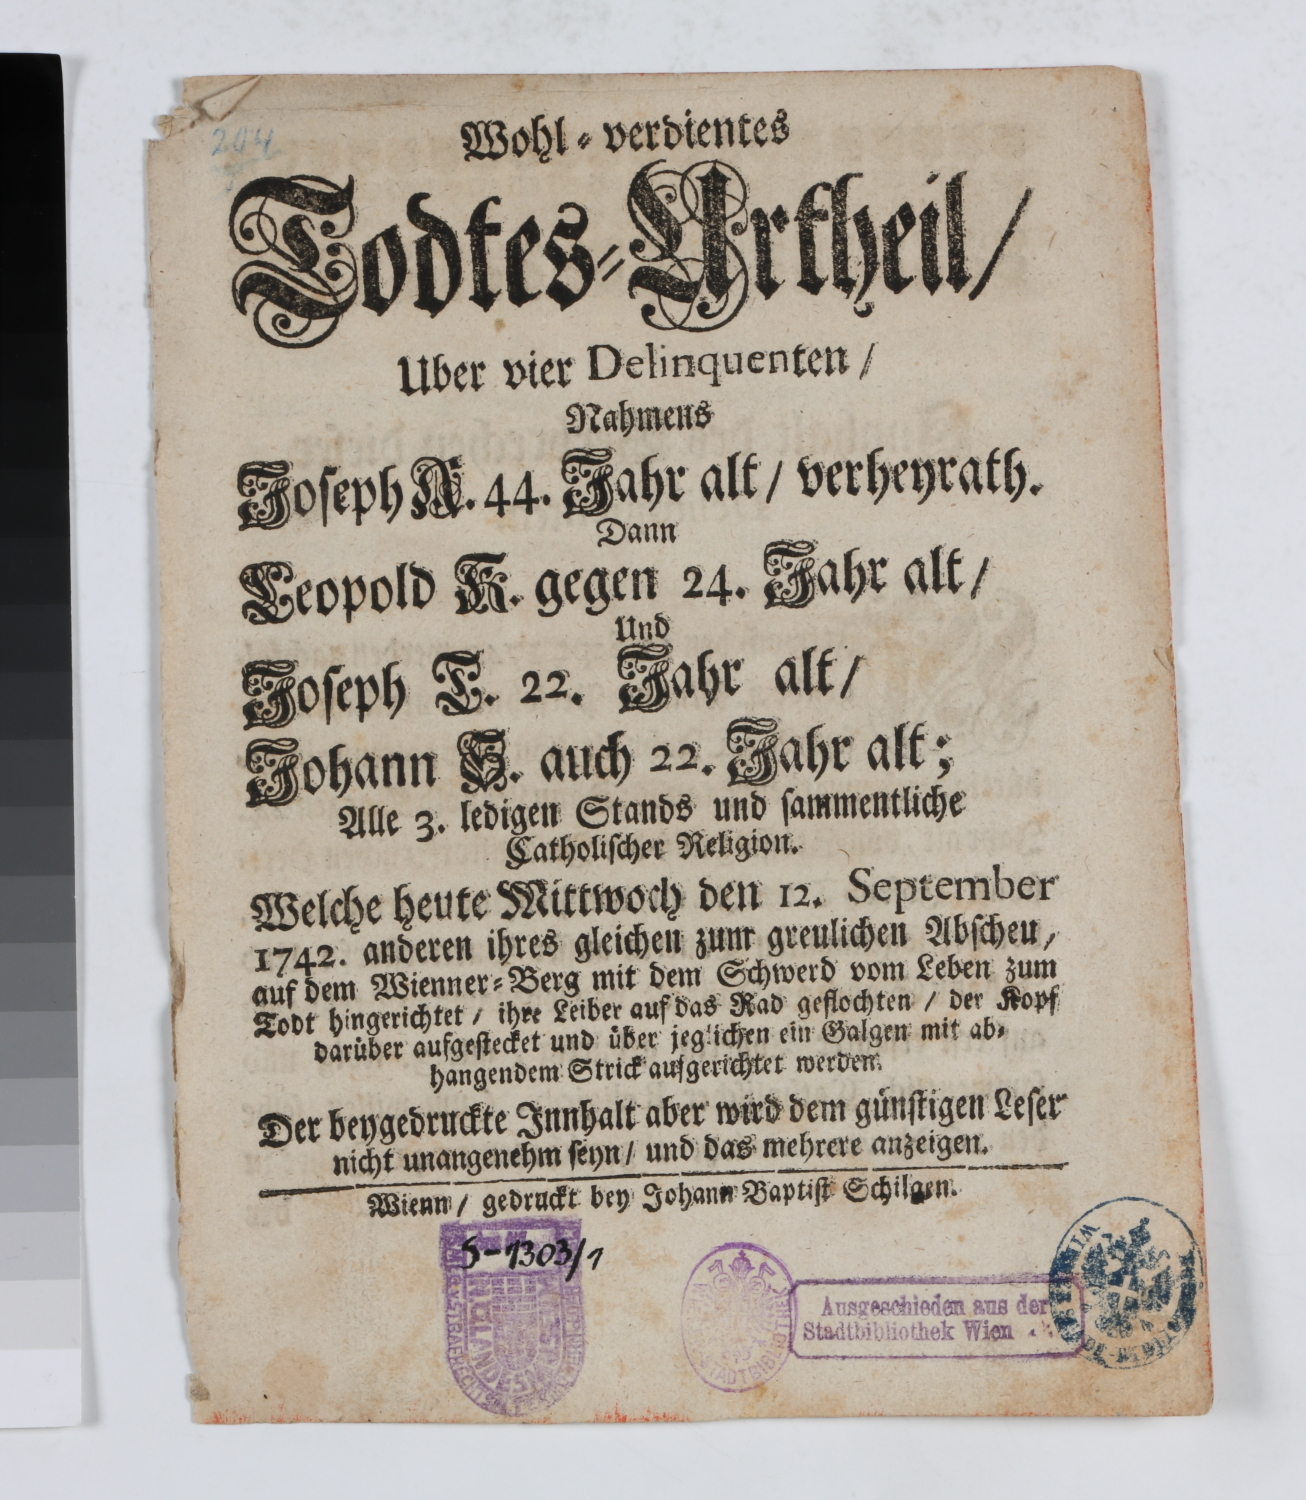 204
Wohl-verdientes
Todtes-Urtheil/
Uber vier Delinquenten/
Nahmens
Joseph A. 44. Jahr alt/ verheyrath.
Dann
Leopold K. gegen 24. Jahr alt/
Und
Joseph T. 22. Jahr alt/
Johann H. auch 22. Jahr alt;
Alle 3. ledigen Stands und sammentliche
Catholischer Religion.
Welche heute Mittwoch den 12. September
1742. anderen ihres gleichen zum greulichen Abscheu,
auf dem Wienner-Berg mit dem Schwerd vom Leben zum
Todt hingerichtet/ ihre Leiber auf das Rad geflochten/ der Kopf
darüber aufgestecket und über jeglichen ein Galgen mit ab-
hangendem Strick aufgerichtet werden.
Der beygedruckte Innhalt aber wird dem günstigen Leser
nicht unangenehm seyn/ und das mehrere anzeigen.
Wienn/ gedruckt bey Johann Baptist Schilgen.
S-1303/1
Ausgeschieden aus der
Stadtbibliothek Wien